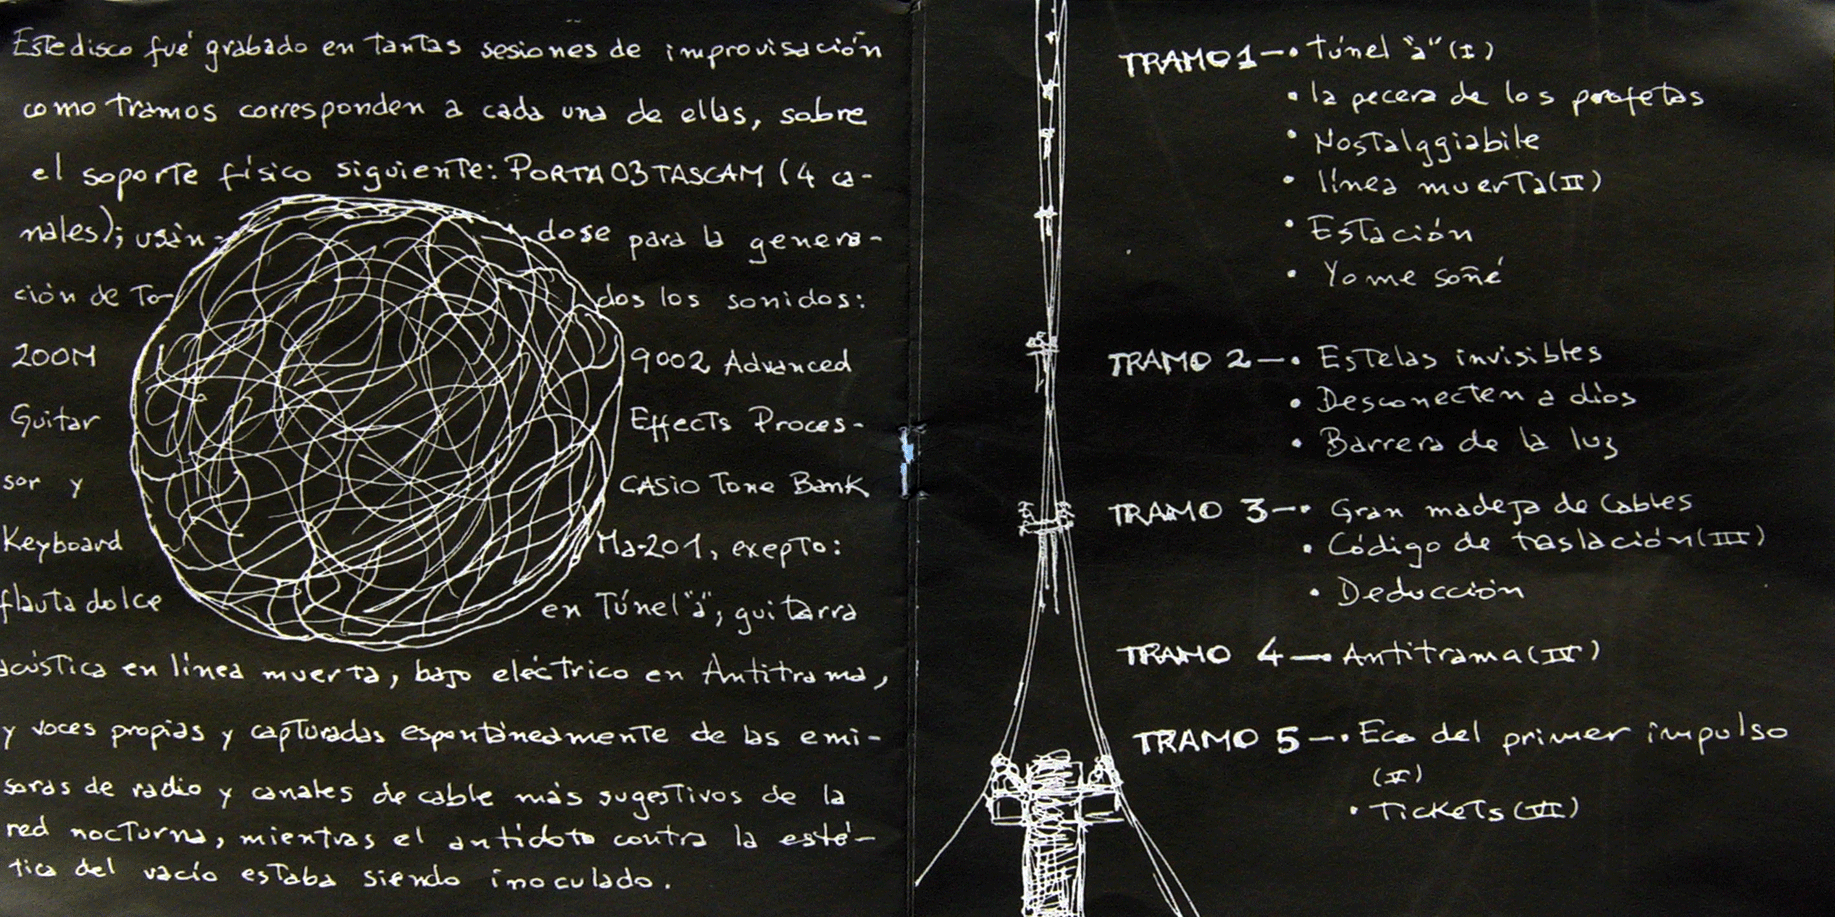 Este disco fué grabado en tantas sesiones de improvisación
como tramos corresponden a cada una de ellas, sobre
el soporte físico siguiente: PORTA 03 TASCAM (4 ca-
nales); usán-dose para la genera-
ción de To-dos los sonidos:
ZOOM 9002 Advanced
Guitar Effects Proces-
sor y CASIO Tone Bank
Keyboard Ma-201, exepto:
flauta dolce en Túnel "a", guitarra
acústica en línea muerta, bajo eléctrico en Antitrama,
y voces propias y capturadas espontáneamente de las emi-
soras de radio y canales de cable más sugestivos de la
red nocturna, mientras el antídoto contra la esté-
tica del vacío estaba siendo inoculado.
TRAMO 1 —• Túnel "a" (I)
• la pecera de los profetas
• Nostalggiabile
• línea muerta (II)
• Estación
• Yo me soñé
TRAMO 2 —• Estelas invisibles
• Desconecten a dios
• Barrera de la luz
TRAMO 3 —• Gran madeja de Cables
• Código de taslación (III)
• Deducción
TRAMO 4 —• Antitrama (IV)
TRAMO 5 —• Eco del primer impulso
(V)
• Tickets (VI)